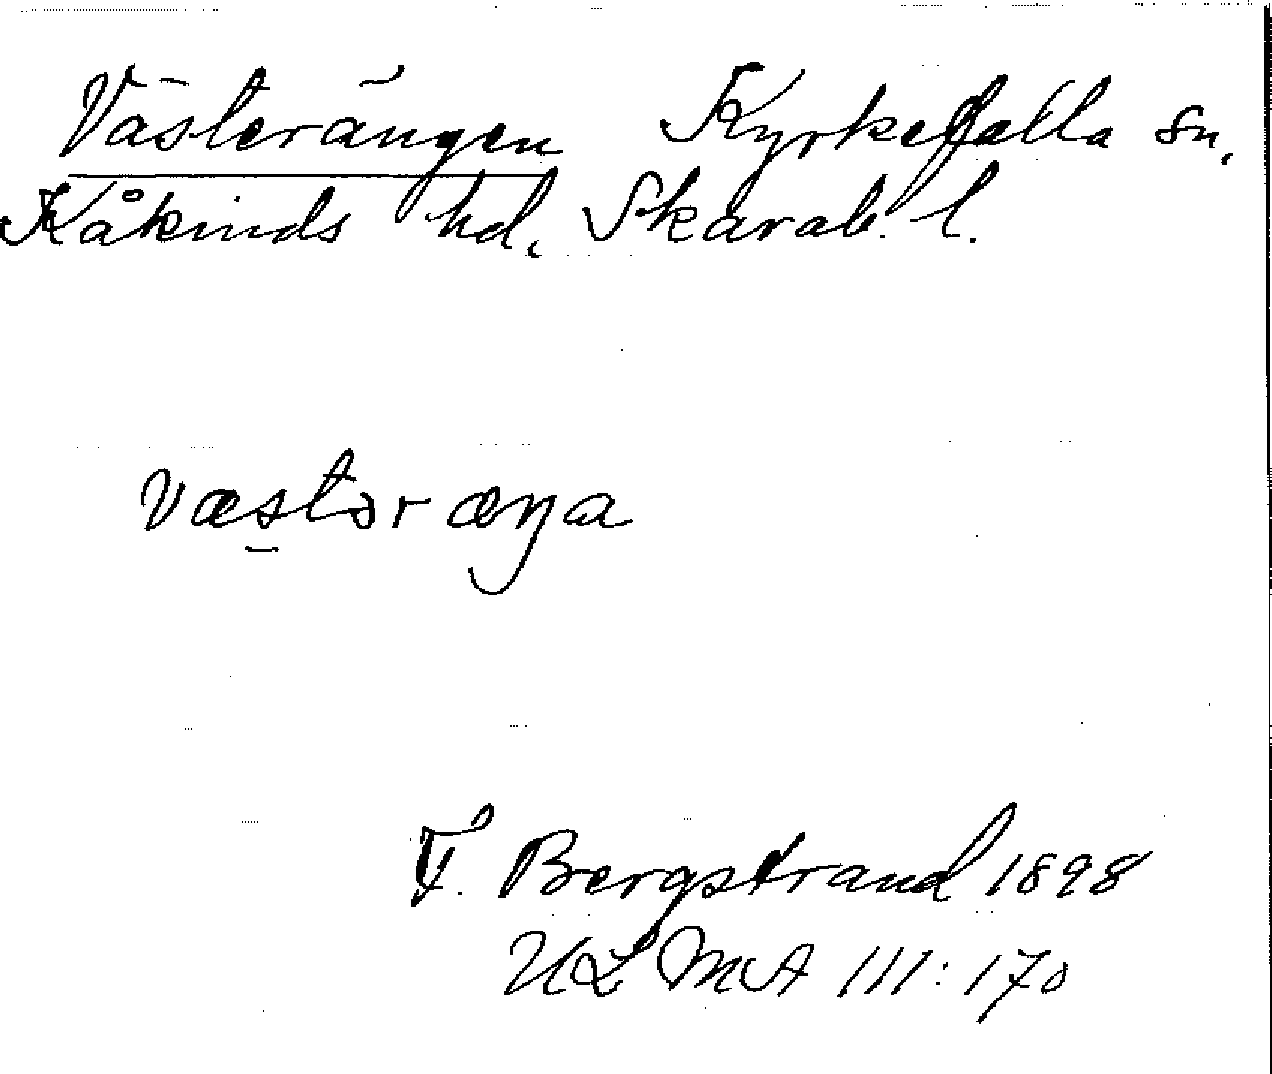 Västerängen Kyrkefalla sn.
Kåkinds hd. Skarab. l.
væstər æŋa
F. Bergstrand 1898
ULMA 111:170